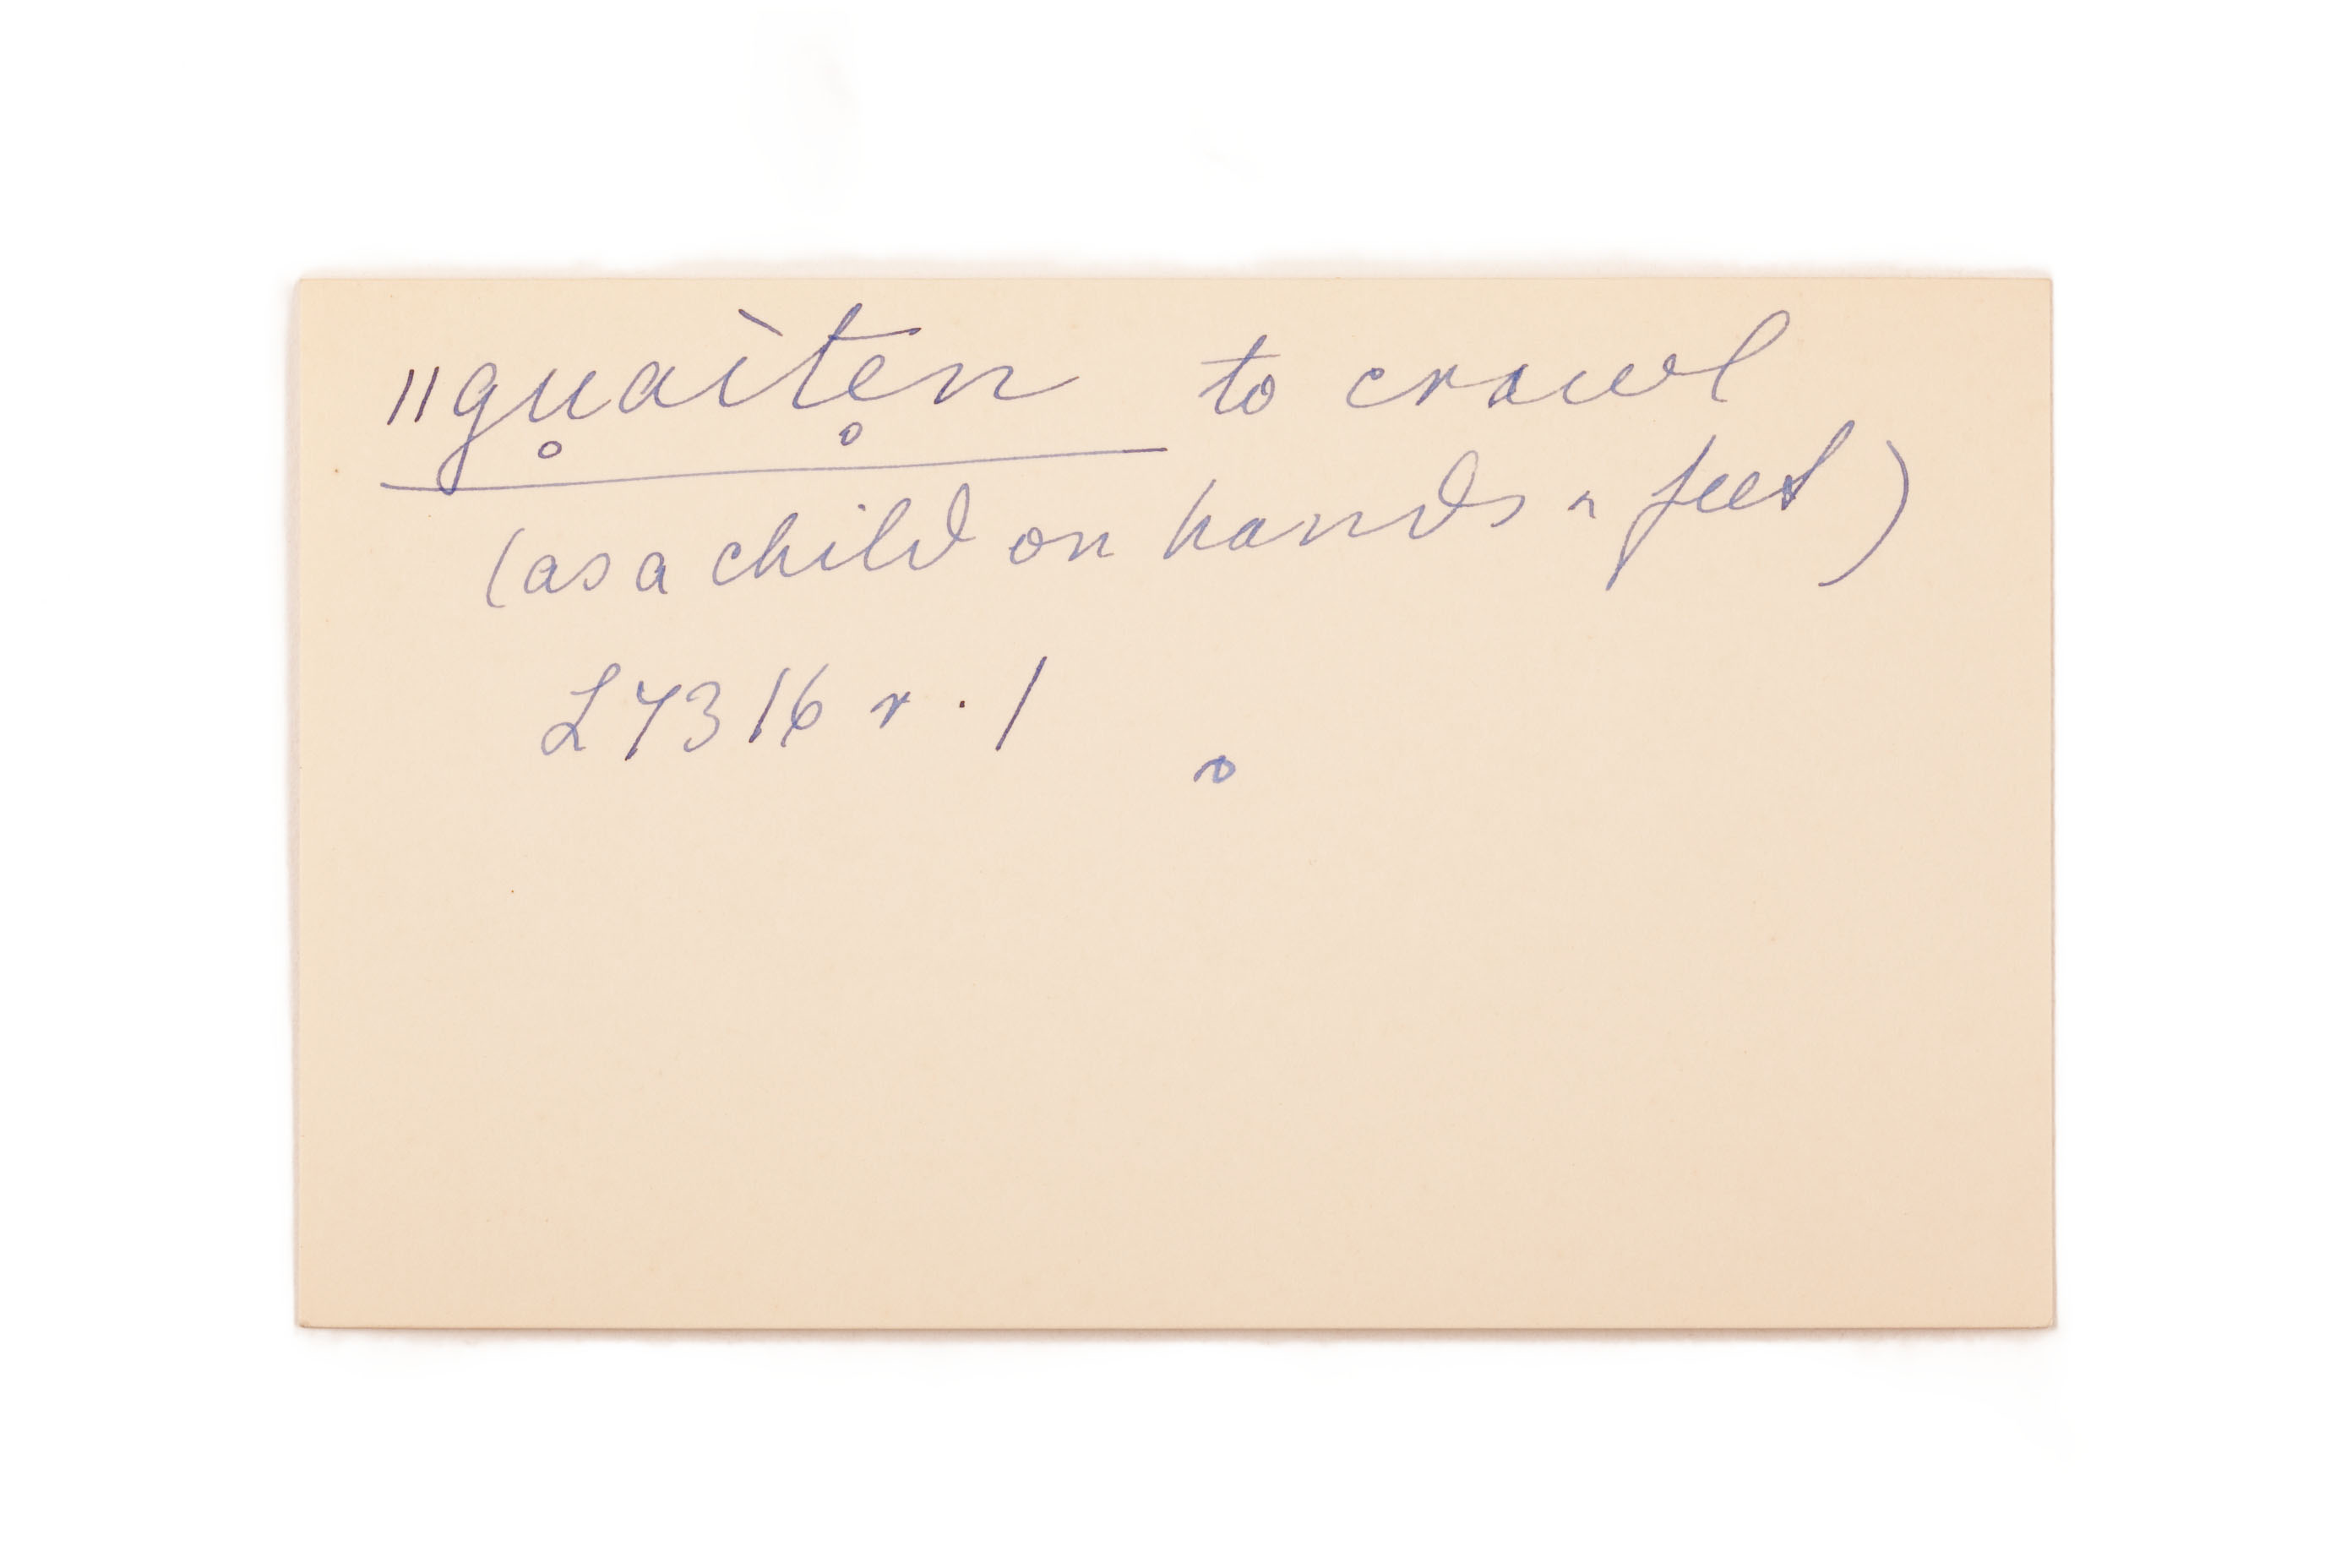 ǁgu̥aìte̥n to crawl
(as a child on hands n feet)
L7316 r. 1